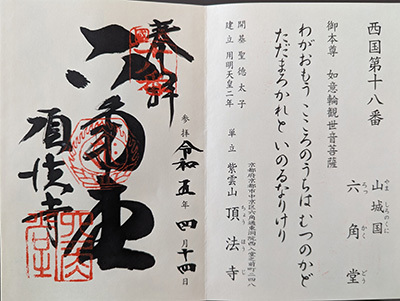 西国第十八番
山城国
やましろのくに
六角堂
ろっかくどう
御本尊 如意輪観世音菩薩
わがおもう こころのうちは むつのかど
ただまろかれと いのるなりけり
開基 聖徳太子
建立 用明天皇二年
京都府京都市中京区六角通東洞院西入堂之前町二四八
単立 紫雲山 頂法寺
ちょうほうじ
奉拝
参拝 令和五年 四月十四日
六角堂
頂法寺